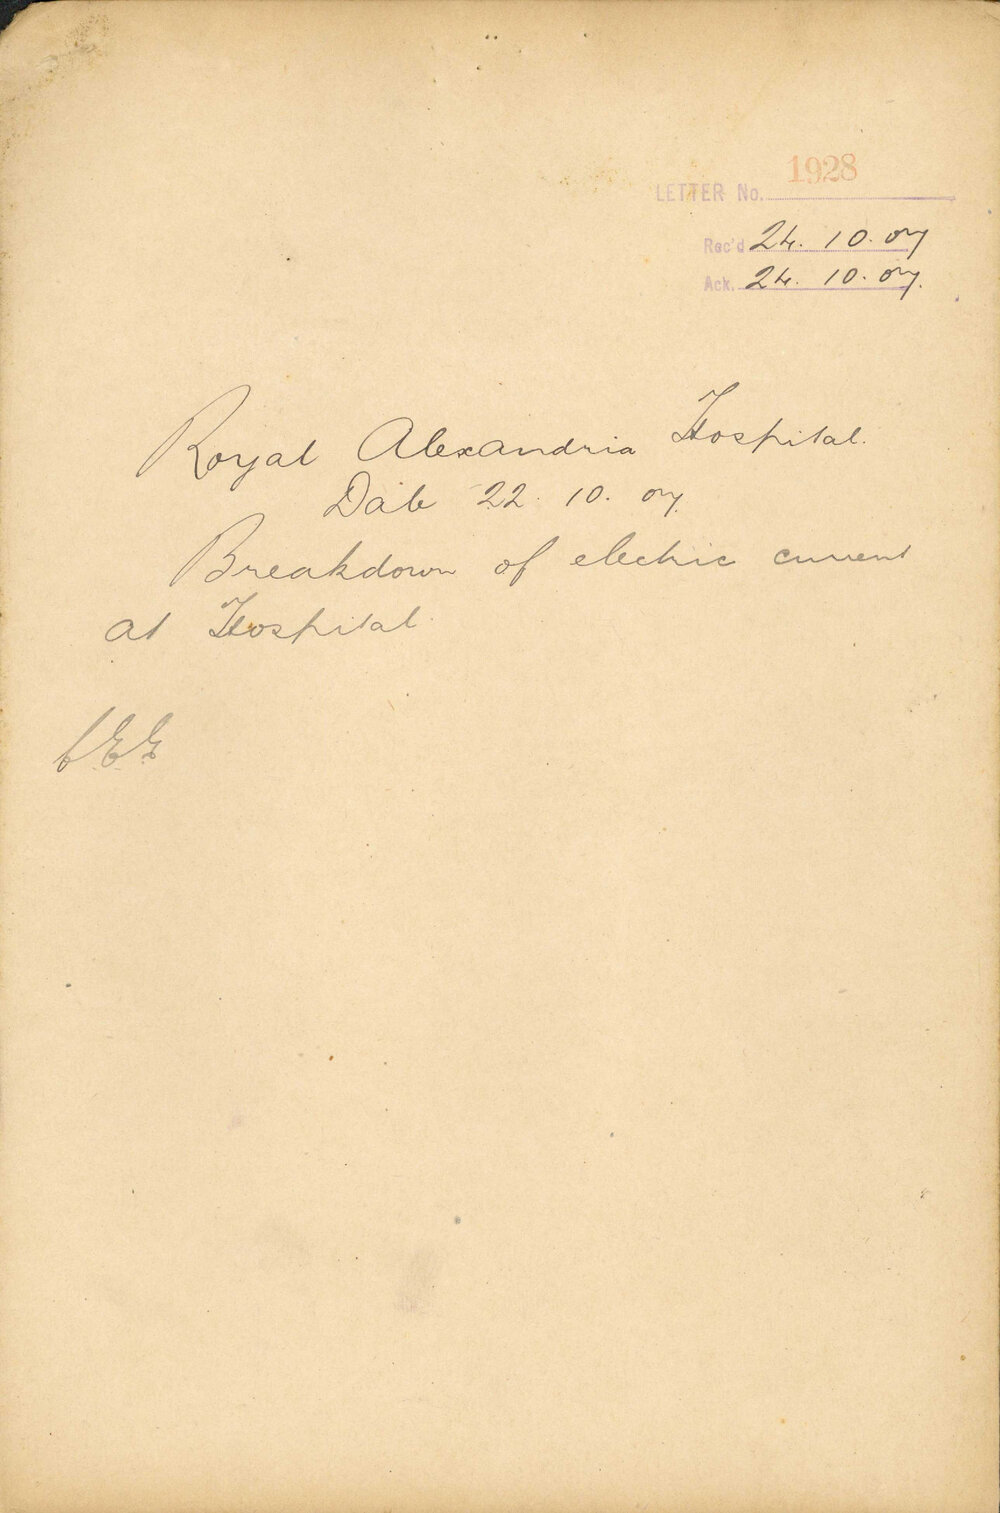 LETTER No. 1928
Rec'd 24. 10. 07
Ack. 24. 10. 07.
Royal Alexandria Hospital.
Date 22. 10. 07.
Breakdown of electric current
at Hospital.